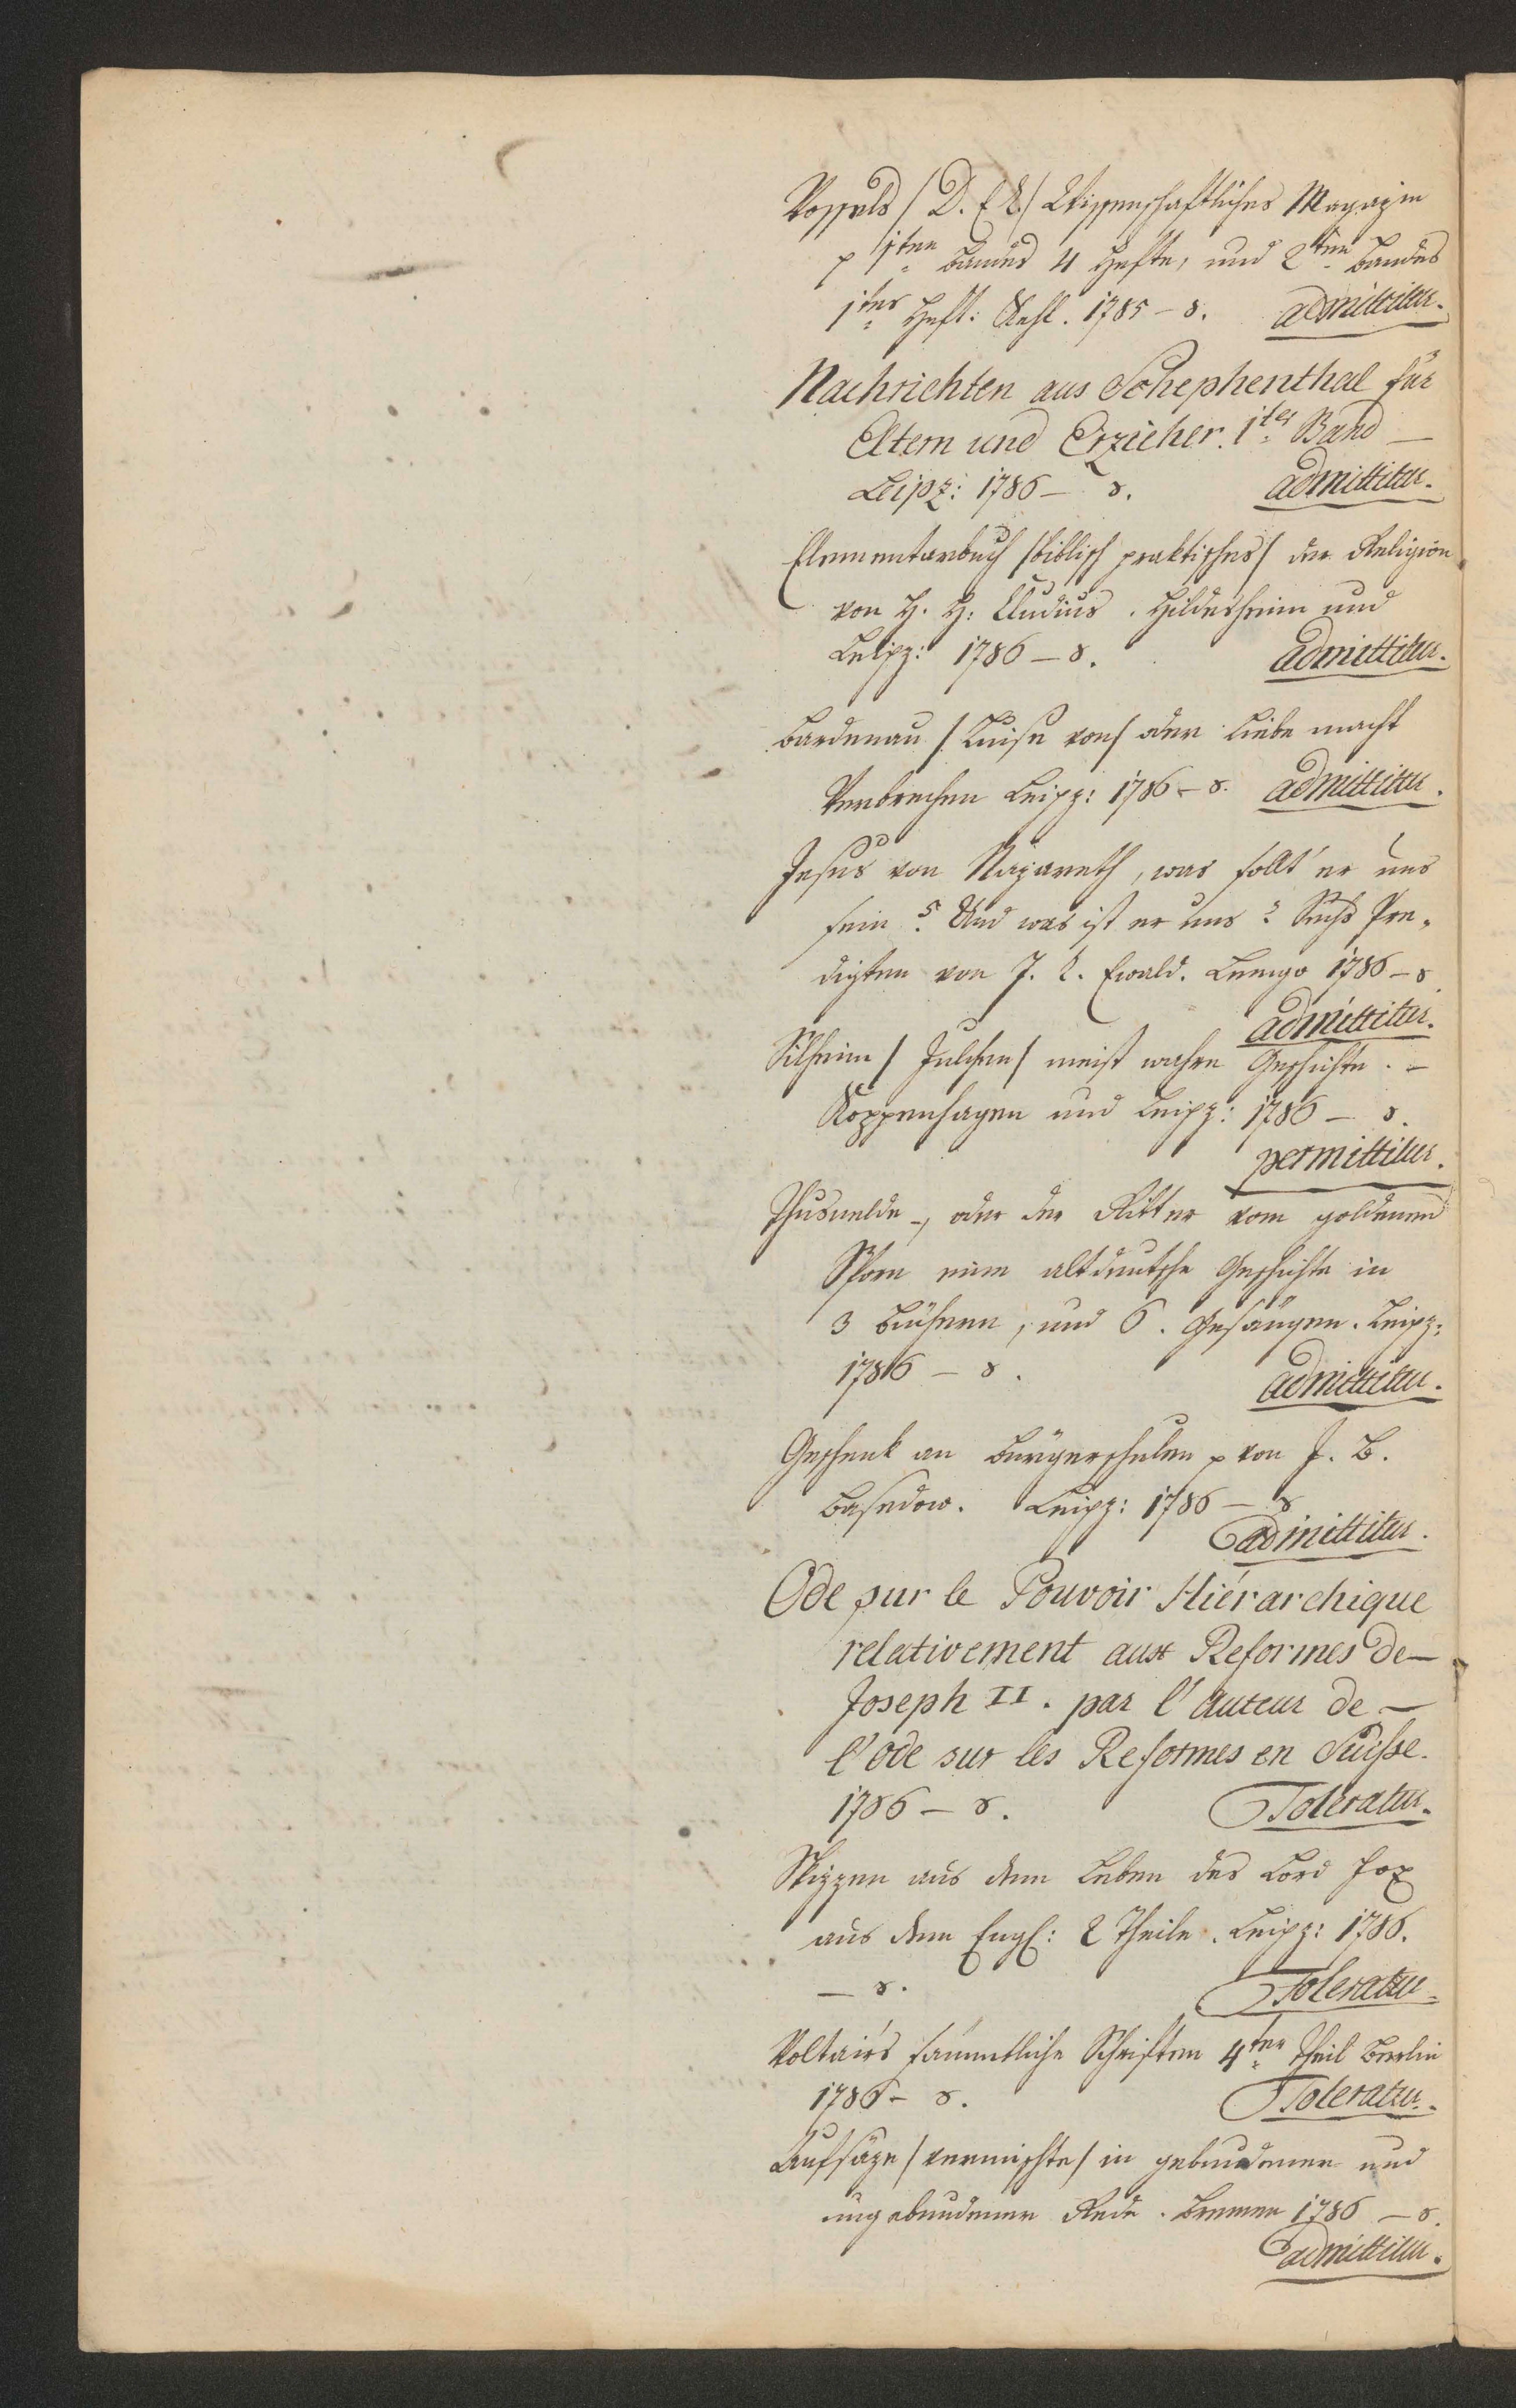 Possels / D. E. L. / Wissenschaftliches Magazin
p 1ten Bandes 4 Hefte, und 2ten Bandes
1tes Heft: Kehl. 1785 – 8. admittitur.
Nachrichten aus Schephenthal für
Eltern und Erzieher. 1ter Band –
Leipz: 1786 – 8. admittitur.
Elementarbuch / biblisch praktisches / der Religion
von H. H: Cludius. Hildesheim und
Leipz: 1786 – 8. admittitur.
Bardenau / Luise von / oder Liebe macht
Verbrechen Leipz: 1786 – 8. admittitur.
Jesus von Nazareth, was sollt' er uns
sein? Und was ist er uns? Sechs Pre-
digten von J. L. Ewald. Lemgo 1786 – 8.
admittitur.
Silheim / Julchen / meist wahre Geschichte. –
Koppenhagen und Leipz: 1786 – 8.
permittitur.
Thusnelde –, oder der Ritter vom goldenen
Sporn eine altdeutsche Geschichte in
3 Büchern, und 6. Gesängen. Leipz:
1786 – 8. admittitur.
Geschenk an Bürgerschulen p von J. B.
Basedow. Leipz: 1786 – 8
admittitur.
Ode sur le Pouvoir Hiérarchique
relativement aux Reformes de –
Joseph II. par l'Auteur de –
l'ode sur les Reformes en Suisse.
1786 – 8. Toleratur.
Skizzen aus dem Leben des Lord Fox
aus dem Engl: 2 Theile. Leipz: 1786.
– 8. Toleratur.
Voltairs sämmtliche Schriften 4ter Theil Berlin
1786 – 8. Toleratur.
Aufsäze / vermischte / in gebundener und
ungebundener Rede. Bremen 1786 – 8.
admittitur.